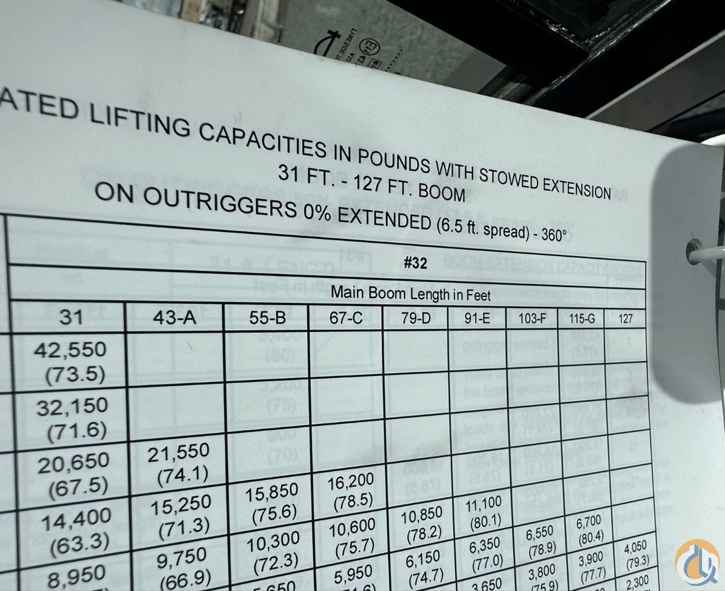 ATED LIFTING CAPACITIES IN POUNDS WITH STOWED EXTENSION
31 FT. - 127 FT. BOOM
ON OUTRIGGERS 0% EXTENDED (6.5 ft. spread) - 360°
#32
Main Boom Length in Feet
31 43-A 55-B 67-C 79-D 91-E 103-F 115-G 127
42,550
(73.5)
32,150
(71.6)
20,650 21,550
(67.5) (74.1)
14,400 15,250 15,850 16,200
(63.3) (71.3) (75.6) (78.5)
8,950 9,750 10,300 10,600 10,850 11,100
(66.9) (72.3) (75.7) (78.2) (80.1)
5,650 5,950 6,150 6,350 6,550 6,700
(74.7) (77.0) (78.9) (80.4)
3,650 3,800 3,900 4,050
(75.9) (77.7) (79.3)
2,300